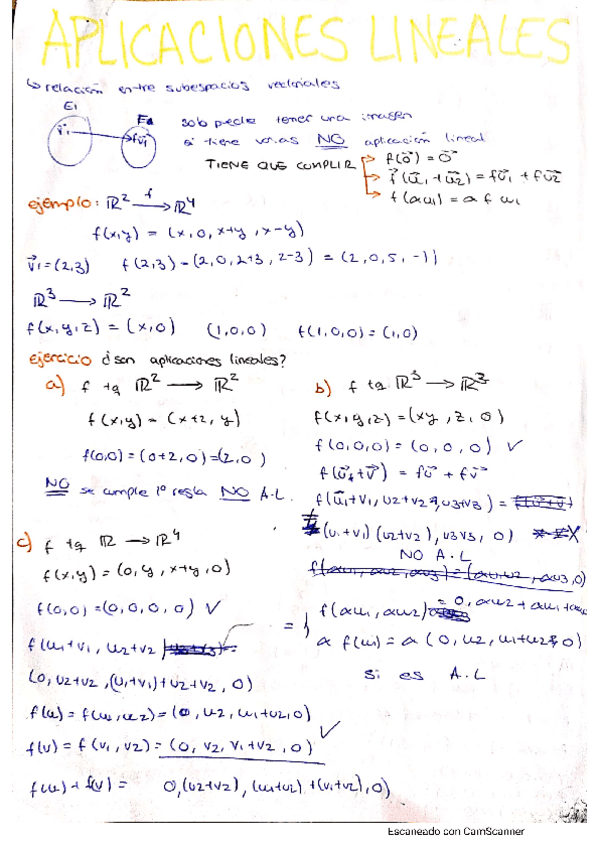 APLICACIONES LINEALES
↳ relación entre subespacios vectoriales
E1
E2
v⃗1
fv⃗1
solo puede tener una imagen
si tiene varias NO aplicación lineal
TIENE QUE CUMPLIR → f(0⃗) = 0⃗
→ f(u⃗1 + u⃗2) = fu⃗1 + fu⃗2
→ f(αu1) = α f u1
ejemplo: ℝ² —f→ ℝ⁴
f(x,y) = (x, 0, x+y, x-y)
v⃗1 = (2,3) f(2,3) = (2, 0, 2+3, 2-3) = (2, 0, 5, -1)
ℝ³ → ℝ²
f(x, y, z) = (x, 0) (1,0,0) f(1,0,0) = (1,0)
ejercicio ¿son aplicaciones lineales?
a) f tq ℝ² → ℝ²
f(x,y) = (x+2, y)
f(0,0) = (0+2, 0) = (2,0)
NO se cumple 1º regla NO A.L.
b) f tq ℝ³ → ℝ³
f(x,y,z) = (xy, z, 0)
f(0,0,0) = (0,0,0) ✓
f(u⃗+v⃗) = fu⃗ + fv⃗
f(u1+v1, u2+v2, u3+v3) =
≠ (u1+v1)(u2+v2), u3v3, 0) X
NO A.L
c) f tq ℝ → ℝ⁴
f(x,y) = (0, y, x+y, 0)
f(0,0) = (0,0,0,0) ✓
f(u1+v1, u2+v2)
(0, u2+v2, (u1+v1)+u2+v2, 0)
f(u) = f(u1,u2) = (0, u2, u1+u2, 0)
f(v) = f(v1,v2) = (0, v2, v1+v2, 0) ✓
f(u) + f(v) = 0, (u2+v2), (u1+u2)+(v1+v2), 0)
f(αu1, αu2) = 0, αu2 + αu1
α f(u1) = α(0, u2, u1+u2, 0)
si es A.L
Escaneado con CamScanner